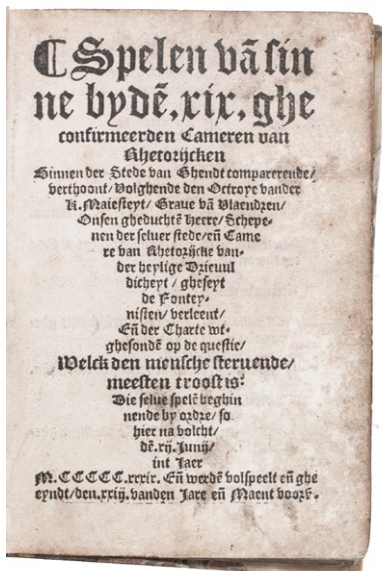 ☾ Spelen vā sin
ne bydē .xix. ghe
confirmeerden Cameren van
Rhetorijcken
Binnen der Stede van Ghendt comparerende/
verthoont/ Volghende den Octroye vander
K. Maiesteyt/ Graue vā Vlaendren/
Onsen gheduchtē Heere/ Schepe-
nen der seluer stede/ eñ Came
re van Rhetorijcke van-
der heylige Drieuul
dicheyt/ gheseyt
de Fontey-
nisten/ verleent/
Eñ der Charte wt-
ghesondē op de questie/
Welck den mensche steruende/
meesten troost is?
Die selue spelē beghin
nende by ordre/ so
hier na volcht/
dē .xij. Junij/
int Jaer
M.CCCCC.xxxix. Eñ werdē volspeelt eñ ghe
eyndt/ den .xxiij. vanden Jare eñ Maent voorš.